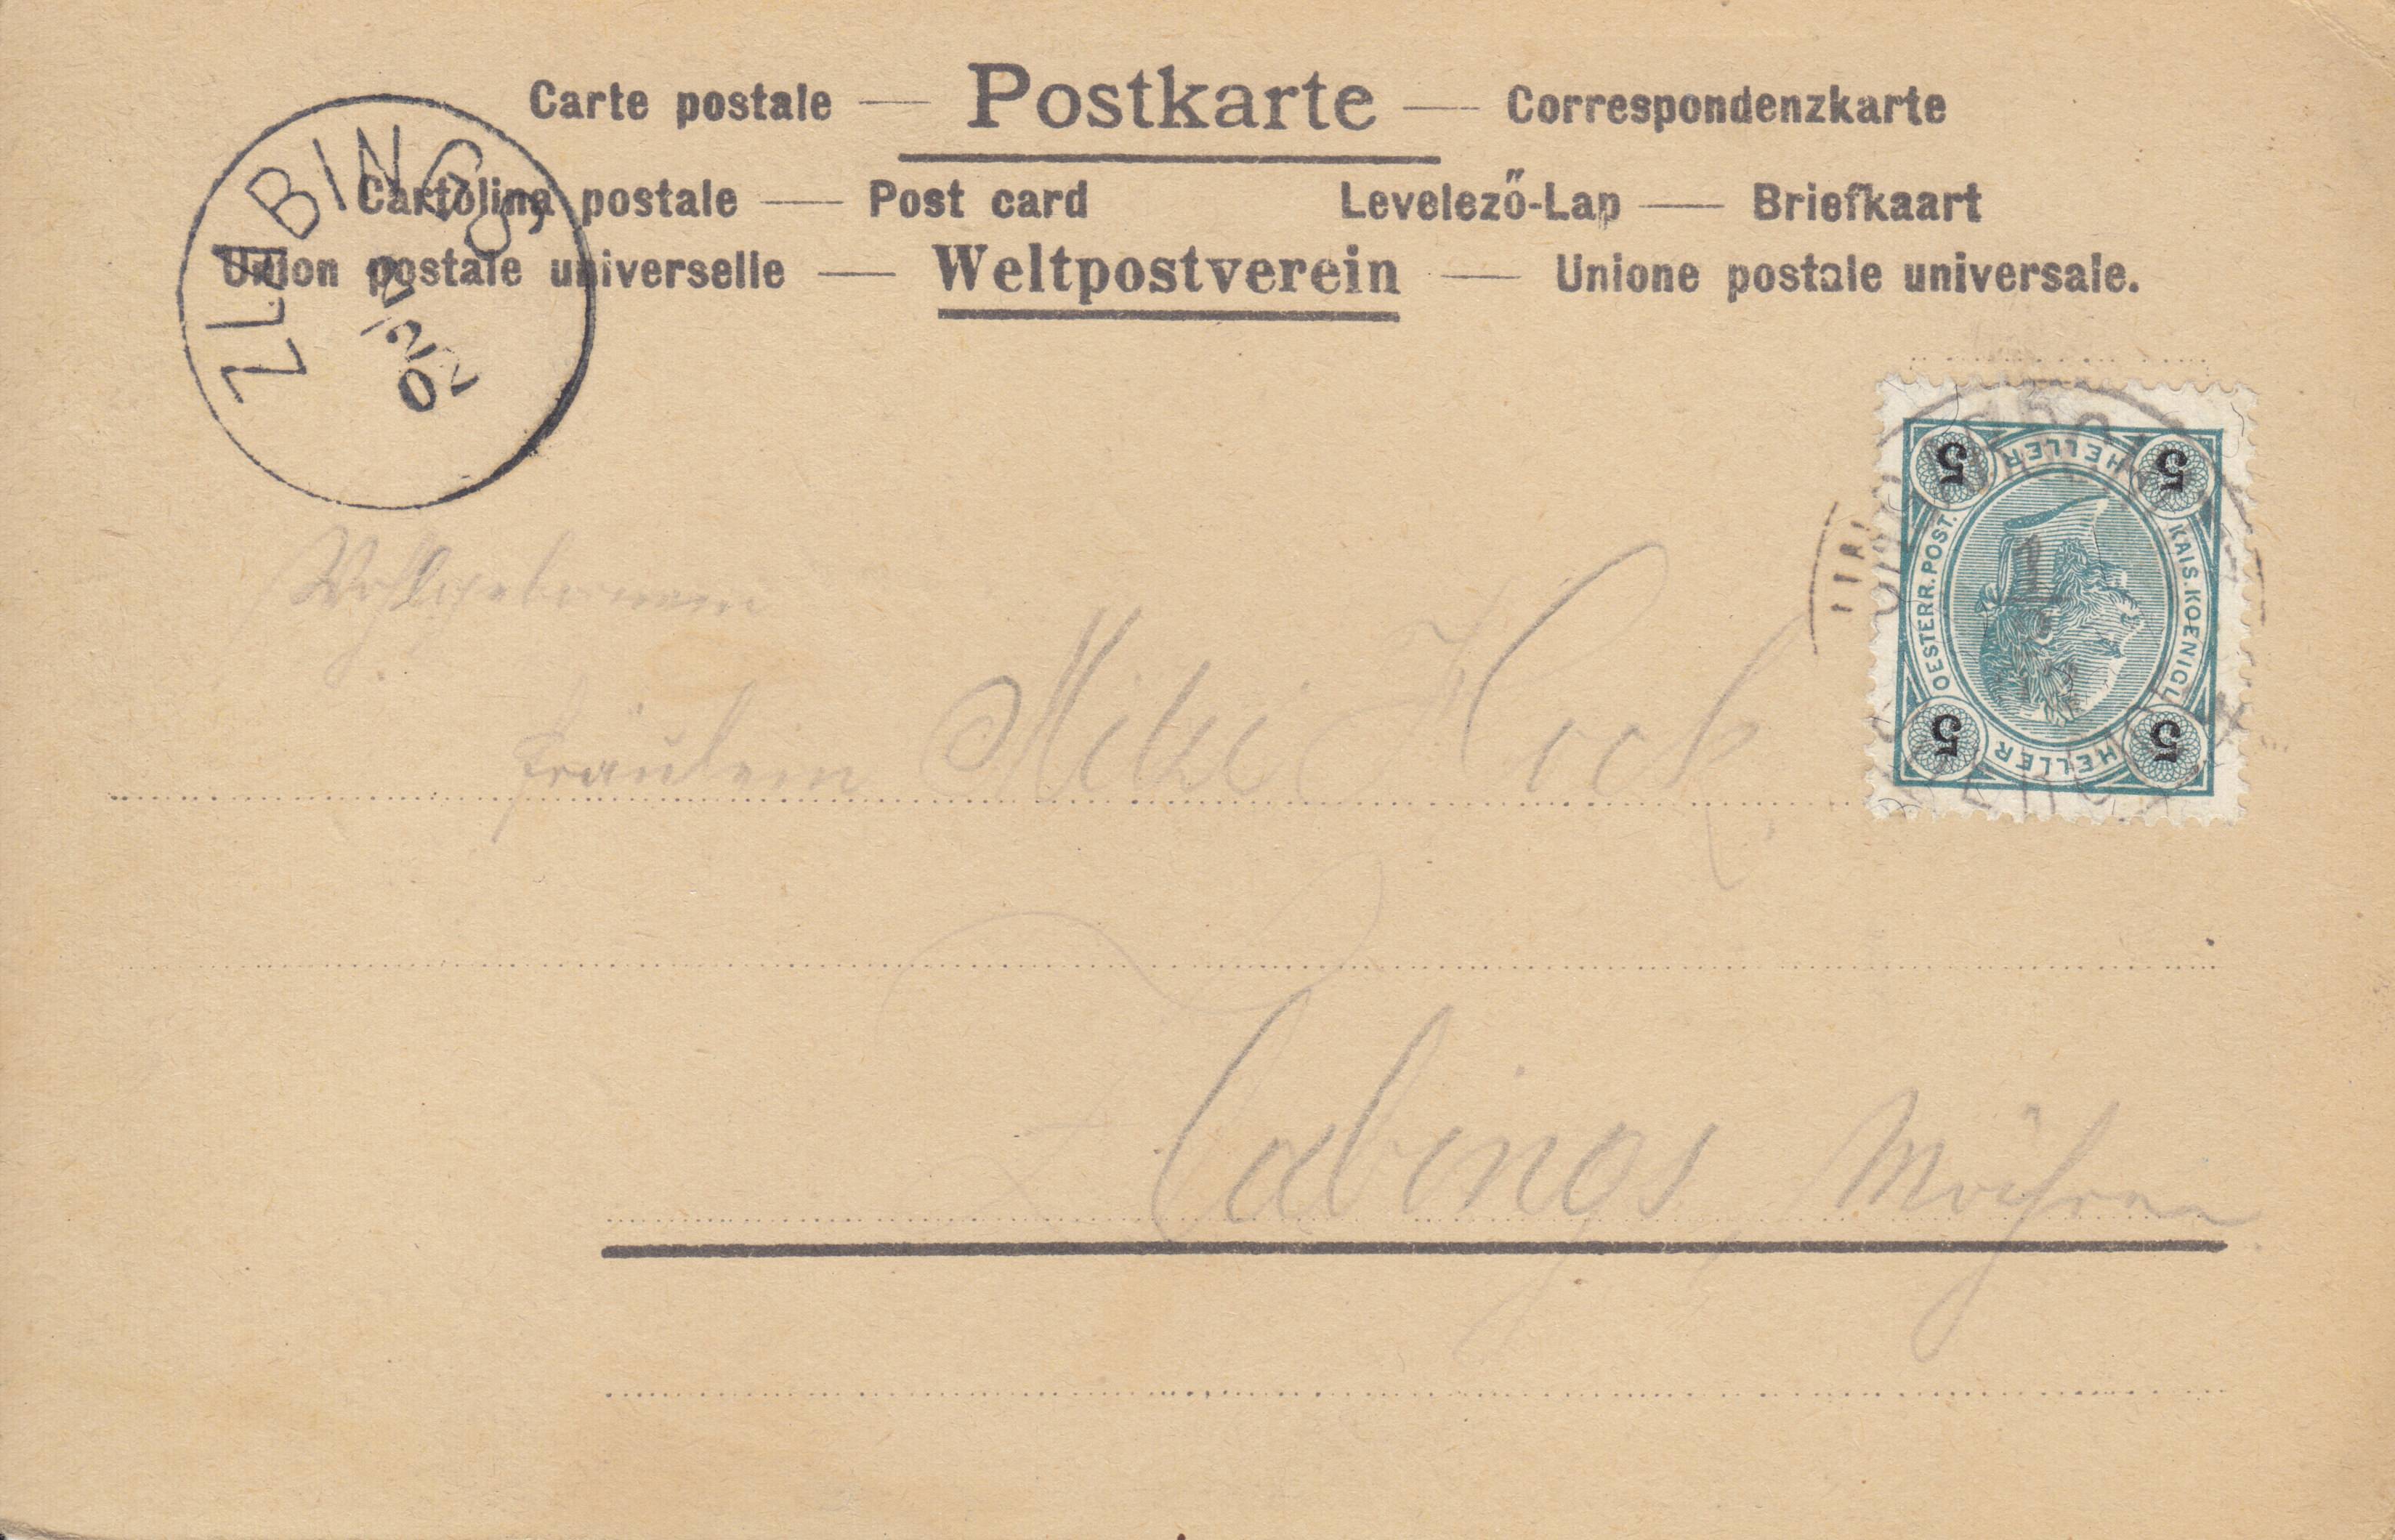 Carte postale — Postkarte — Correspondenzkarte
Cartolina postale — Post card Levelező-Lap — Briefkaart
Union postale universelle — Weltpostverein — Unione postale universale.
ZLABINGS
2/2
02
5 HELLER 5
KAIS. KOENIGL.
OESTERR. POST.
5 HELLER 5
Wohlgeborenem
Fräulein Mitzi Hock
Zlabings, Mähren